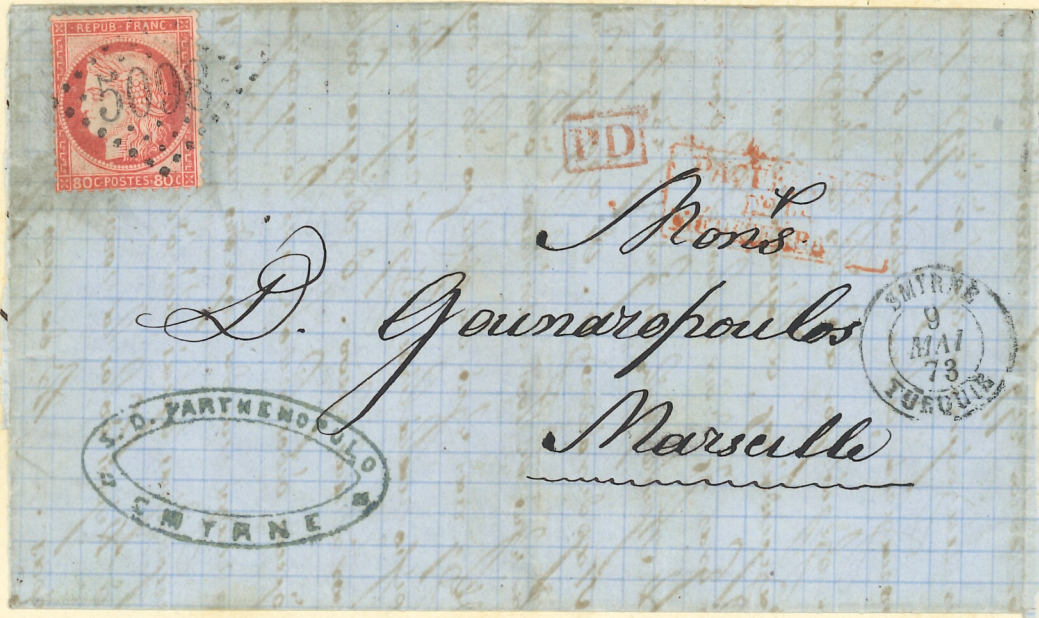 REPUB·FRANC·
80C·POSTES·80C
PD
PAQUE
Mons
D. Gounaropoulos
Marseille
SMYRNE
9
MAI
73
TURQUIE
PARTHENOPULO
SMYRNE